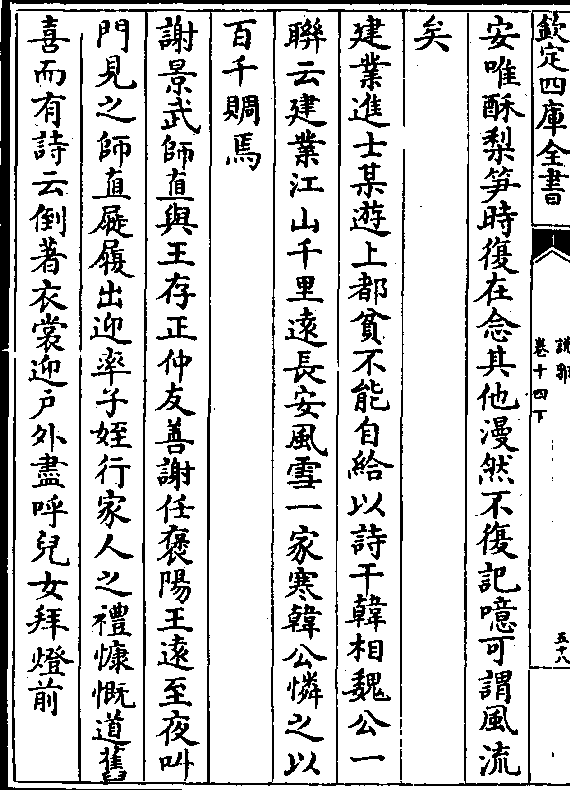 欽定四庫全書
說郛
卷十四下
五十八
安唯酥梨笋時復在念其他漫然不復記噫可謂風流
矣
建業進士某遊上都貧不能自給以詩干韓相魏公一
聯云建業江山千里遠長安風雪一家寒韓公憐之以
百千賙焉
謝景武師直與王存正仲友善謝任襃陽王遠至夜叫
門見之師直屣履出迎率子姪行家人之禮慷慨道舊
喜而有詩云倒著衣裳迎户外盡呼兒女拜燈前